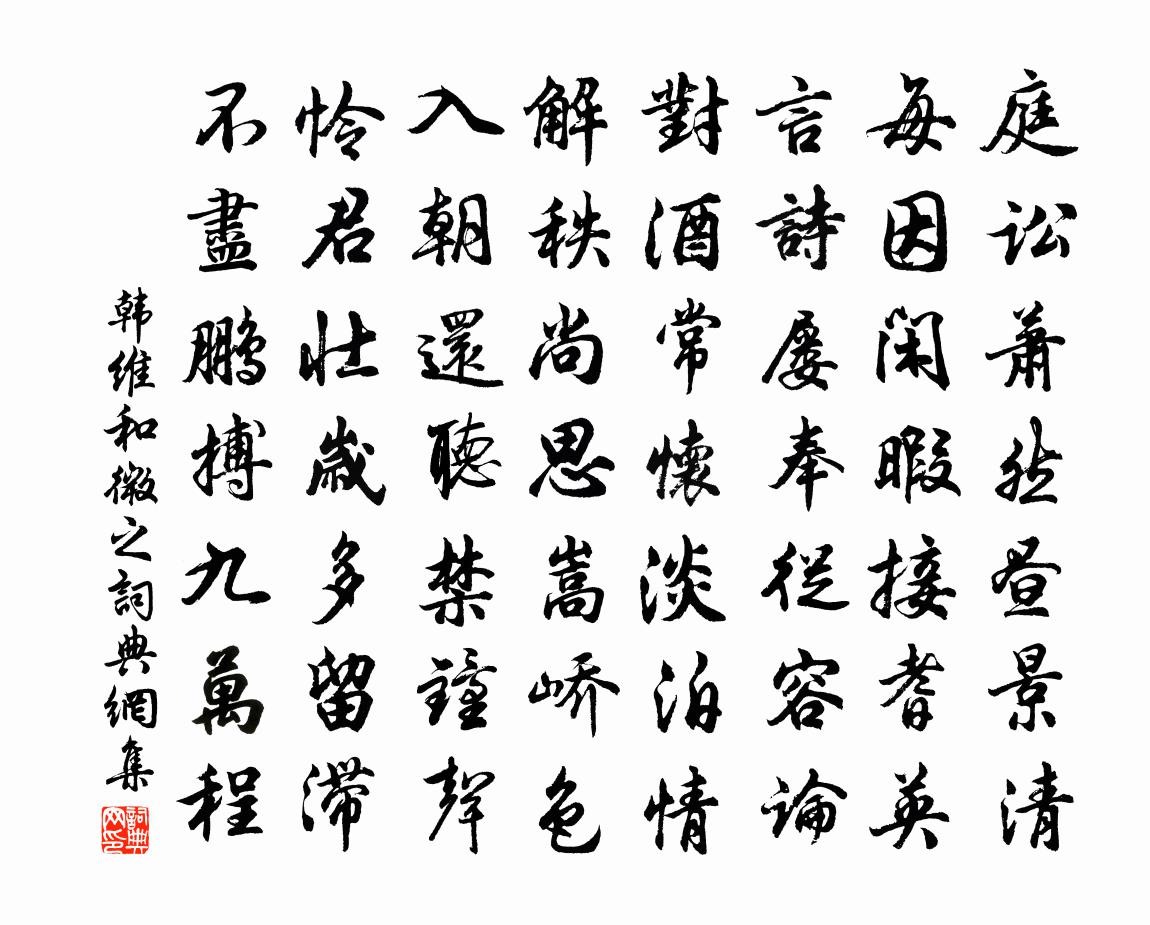 庭訟蕭然昼景清
每因閑暇接耆英
言詩屢奉從容論
對酒常懷淡泊情
解秩尚思嵩嶠色
入朝還聽禁鐘聲
怜君壯歲多留滯
不盡鵬摶九萬程
韩維和微之詞典網集
詞典网印